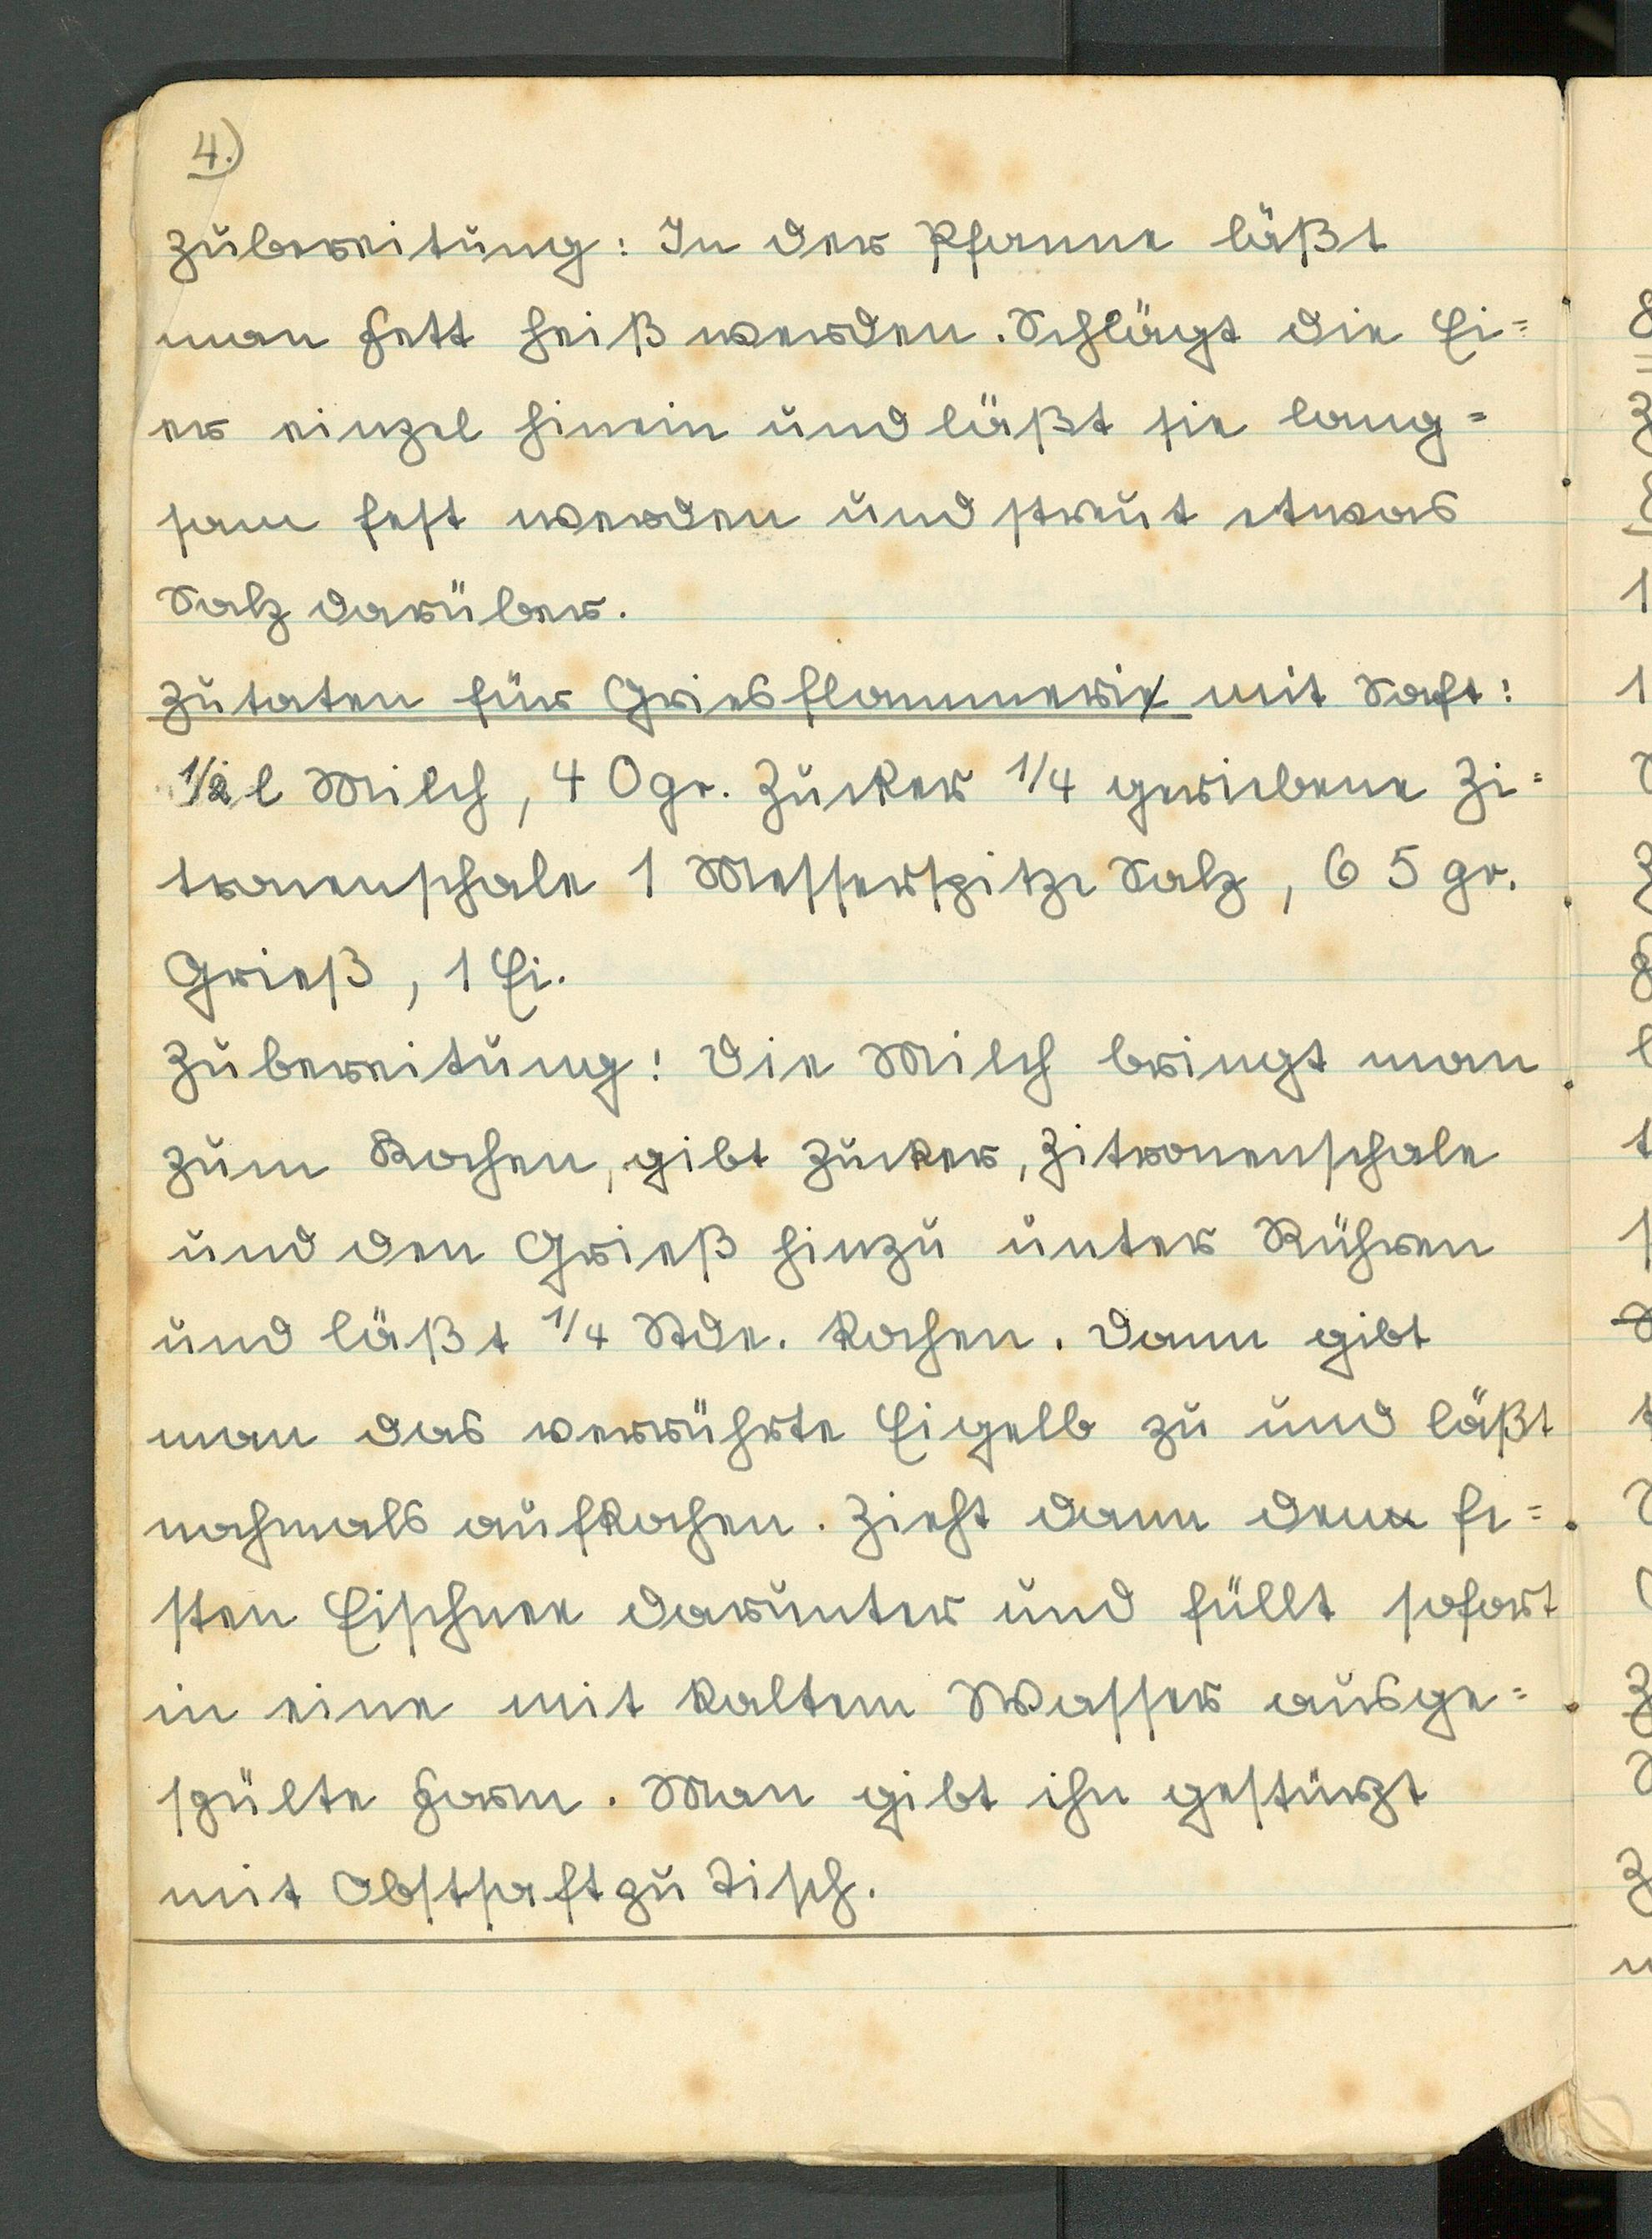 4.)
Zubereitung: In der Pfanne läßt
man Fett heiß werden. Schlägt die Ei=
er einzel hinein und läßt sie lang=
sam fest werden und streut etwas
Salz darüber.
Zutaten für Griesflammerie mit Saft:
1/2 l Milch, 40gr. Zucker 1/4 geriebene Zi=
tronenschale 1 Messerspitze Salz, 65 gr.
Grieß, 1 Ei.
Zubereitung: Die Milch bringt man
zum Kochen, gibt Zucker, Zitronenschale
und den Grieß hinzu unter Rühren
und läßt 1/4 Stde. kochen. Dann gibt
man das verrührte Eigelb zu und läßt
nochmals aufkochen. Zieht dann den fe=
sten Eischnee darunter und füllt sofort
in eine mit kaltem Wasser ausge=
spülte Form. Man gibt ihn gestürzt
mit Obstsaft zu Tisch.